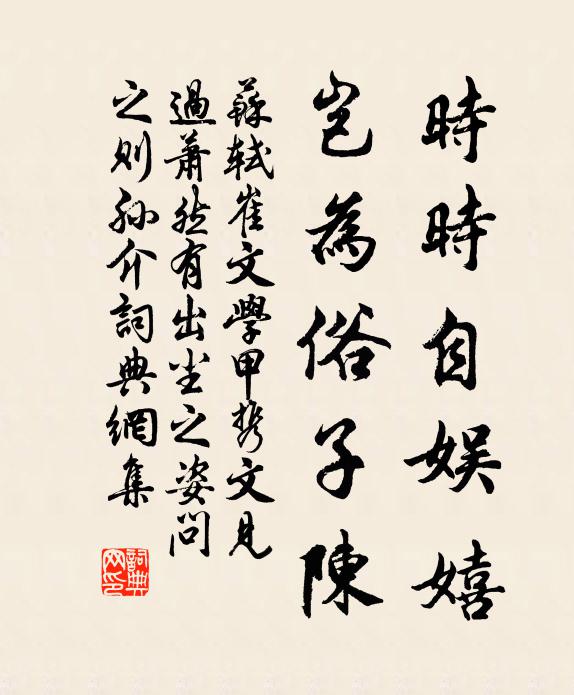 時時自娛嬉
豈為俗子陳
蘇軾崔文學甲攜文見
過蕭然有出塵之姿問
之則孫介詞典網集
詞典網印